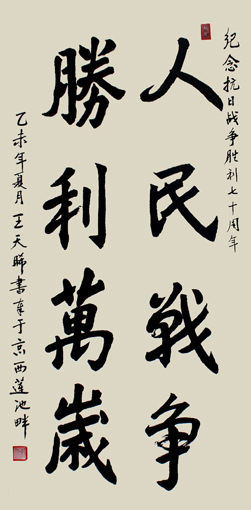 纪念抗日战争胜利七十周年
人民戰争
勝利萬歲
乙未年夏月王天晞書于京西莲池畔